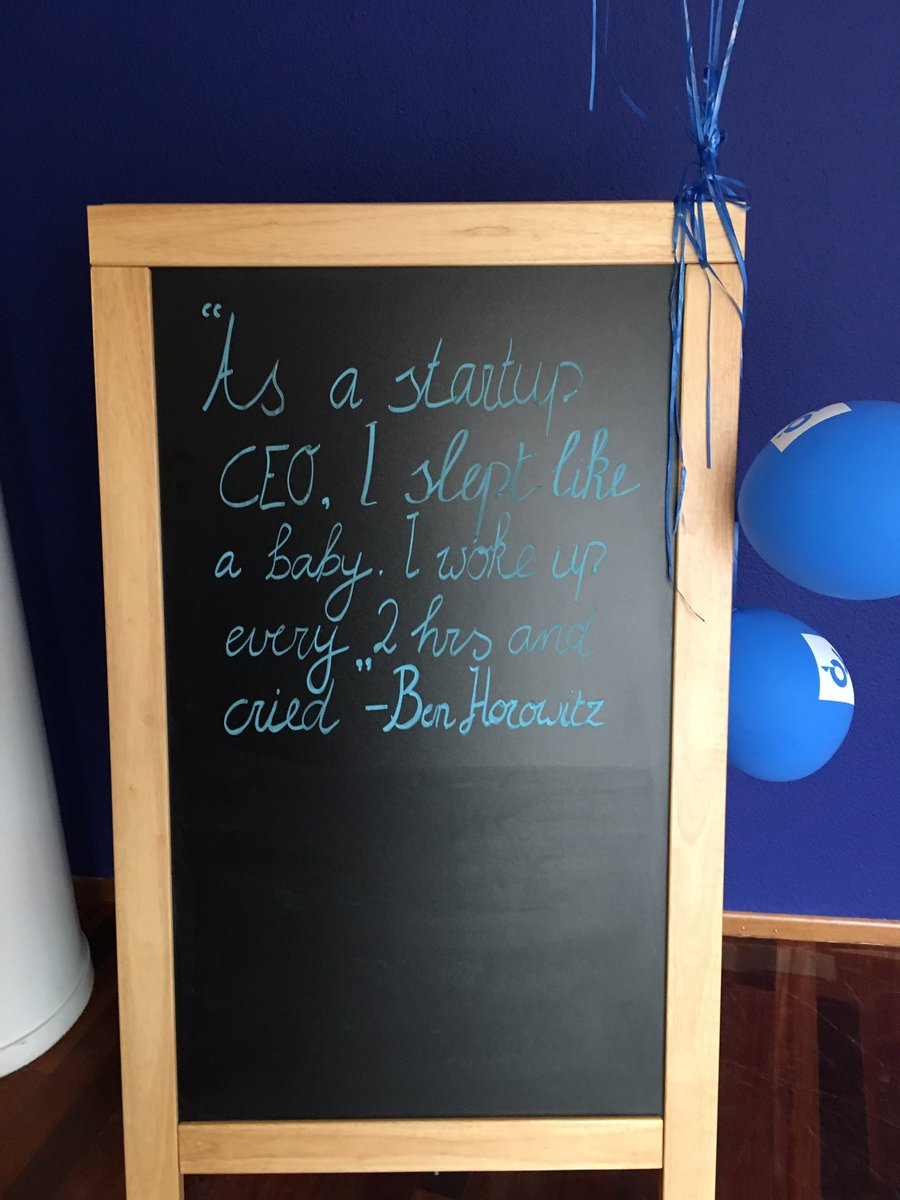 "As a startup
CEO, I slept like
a baby. I woke up
every 2 hrs and
cried" -Ben Horowitz